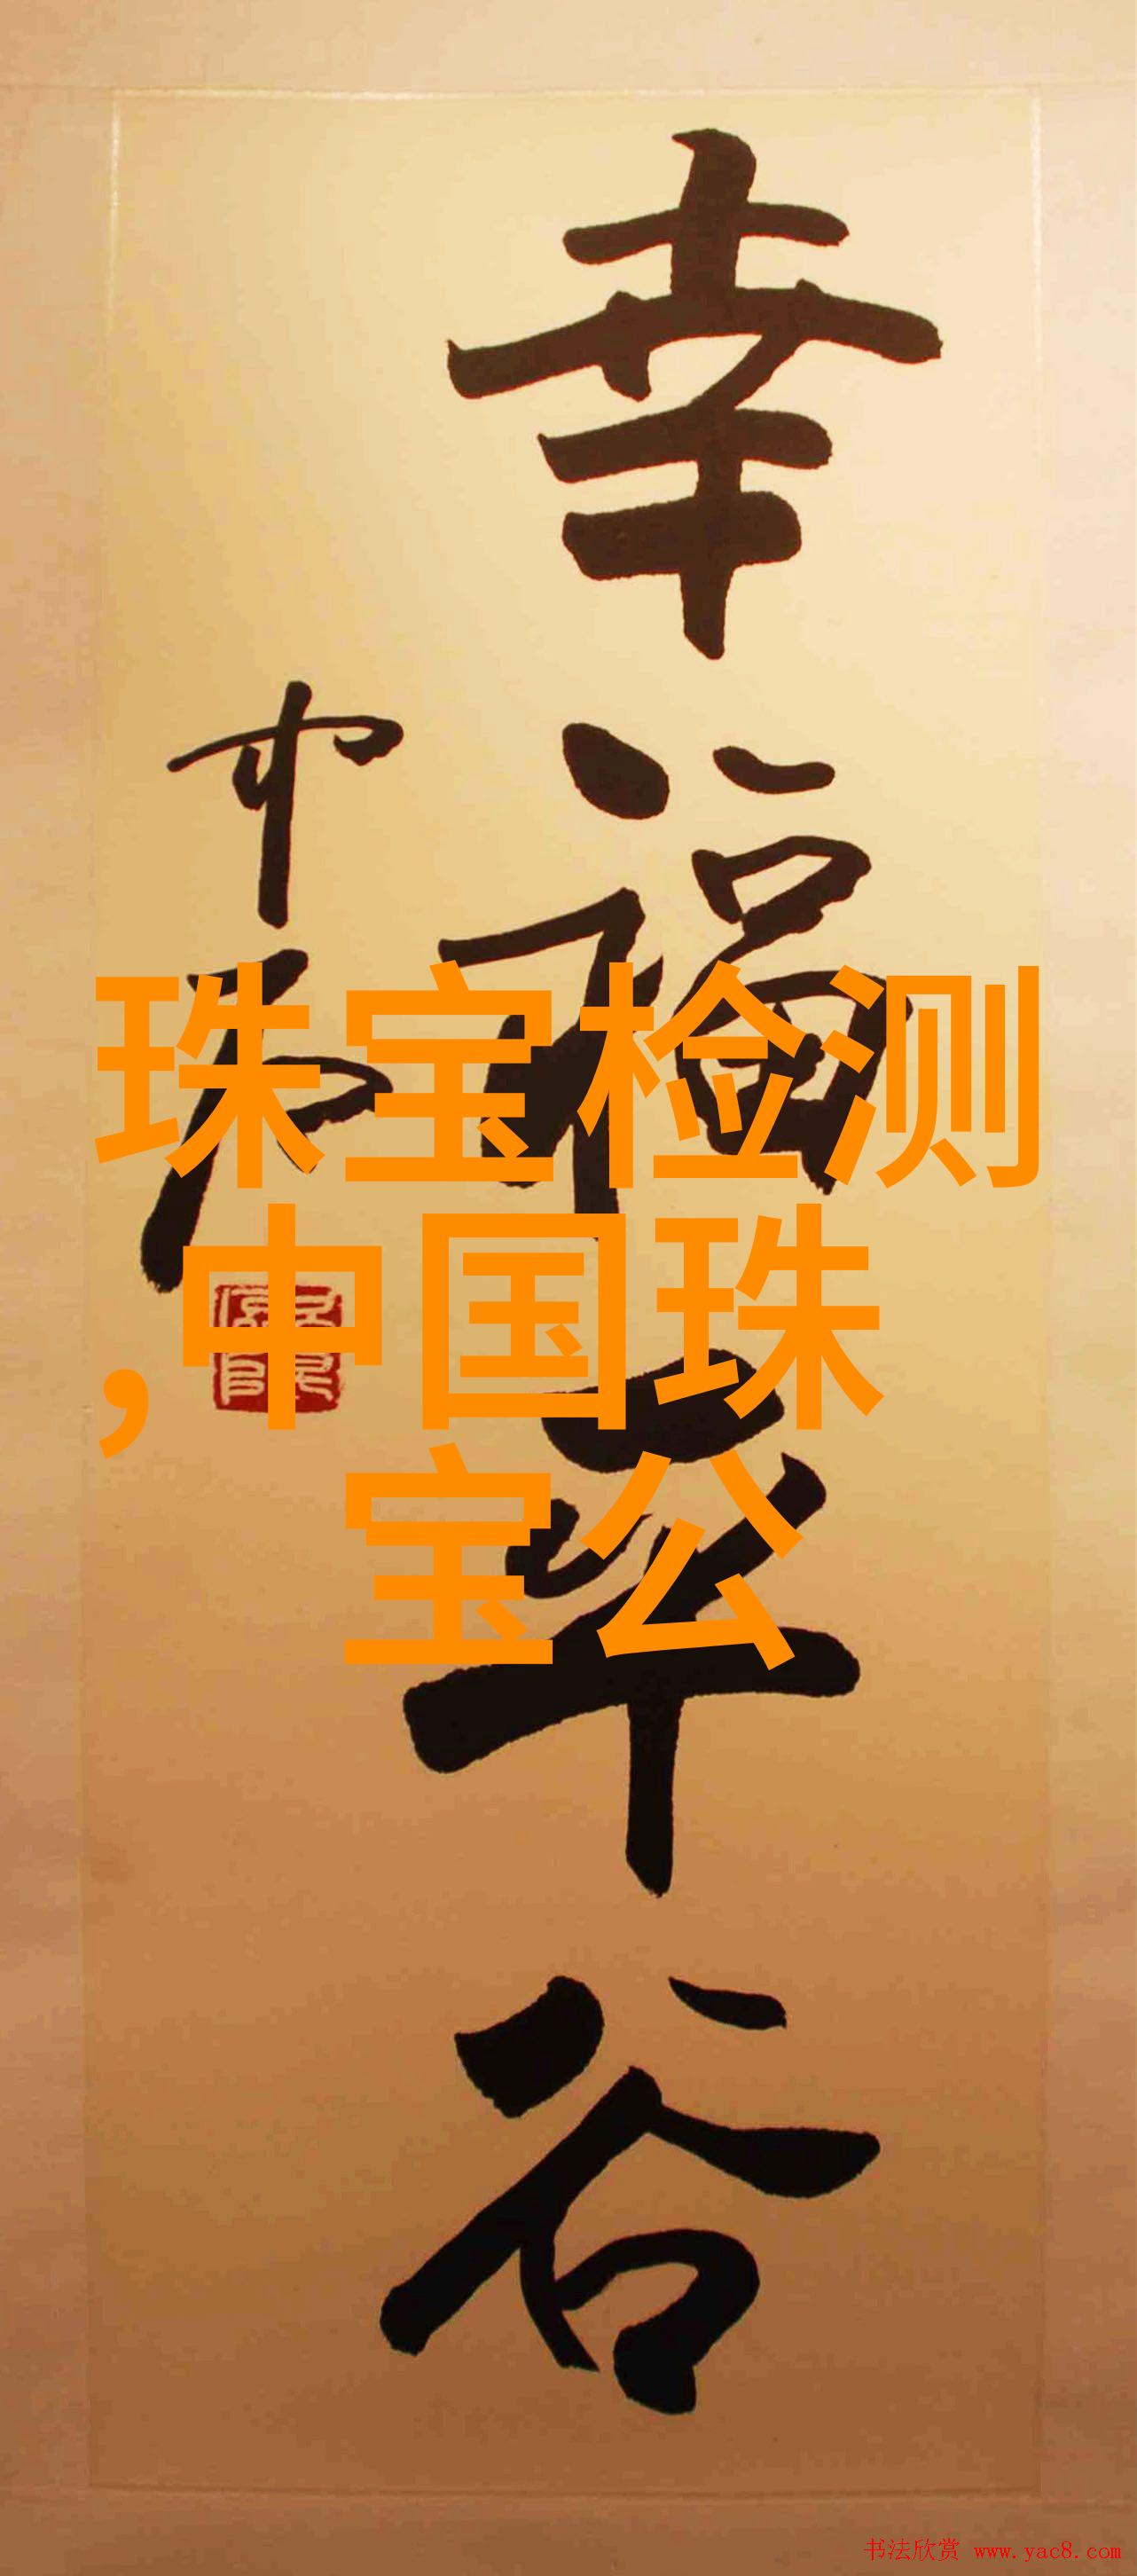 幸福平谷
中石
珠宝检测
,中国珠
宝公
书法欣赏 www.yac8.com